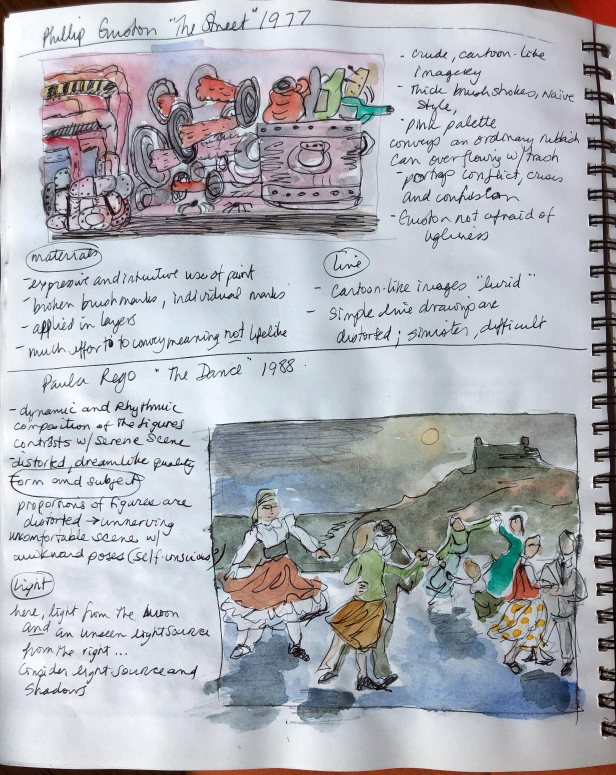 Phillip Guston "The Street" 1977
- crude, cartoon-like
imagery
- Thick brushstrokes, naive
style,
- pink palette
conveys an ordinary rubbish
can overflowing w/ trash
- perhap conflict, crises
and confusion
- Guston not afraid of
ugliness
materials
- expressive and intuitive use of paint
- broken brushmarks, individual marks
- applied in layers
- much effort to to convey meaning not lifelike
line
- cartoon-like images "lurid"
- Simple line drawings are
distorted; sinister, difficult
Paula Rego "The Dance" 1988
- dynamic and rhythmic
composition of the figures
contrasts w/ serene scene
- distorted, dreamlike quality
form and subject
proportions of figures are
distorted → unnerving
uncomfortable scene w/
awkward poses (self-conscious)
light
here, light from the moon
and an unseen light source
from the right...
Consider light source and
shadows